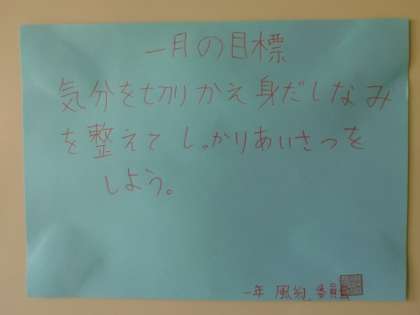 一月の目標
気分を切りかえ身だしなみ
を整えてしっかりあいさつを
しよう。
一年 風紀委員会